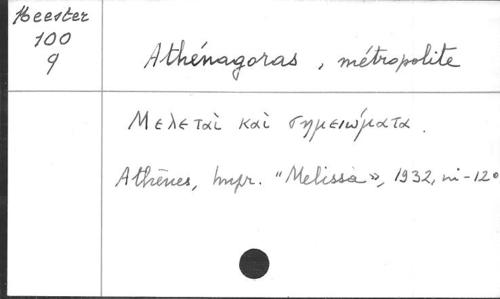 Heester
100
9
Athénagoras, métropolite
Μελεταὶ καὶ σημειώματα.
Athènes, Impr. "Melissa», 1932, in-12°